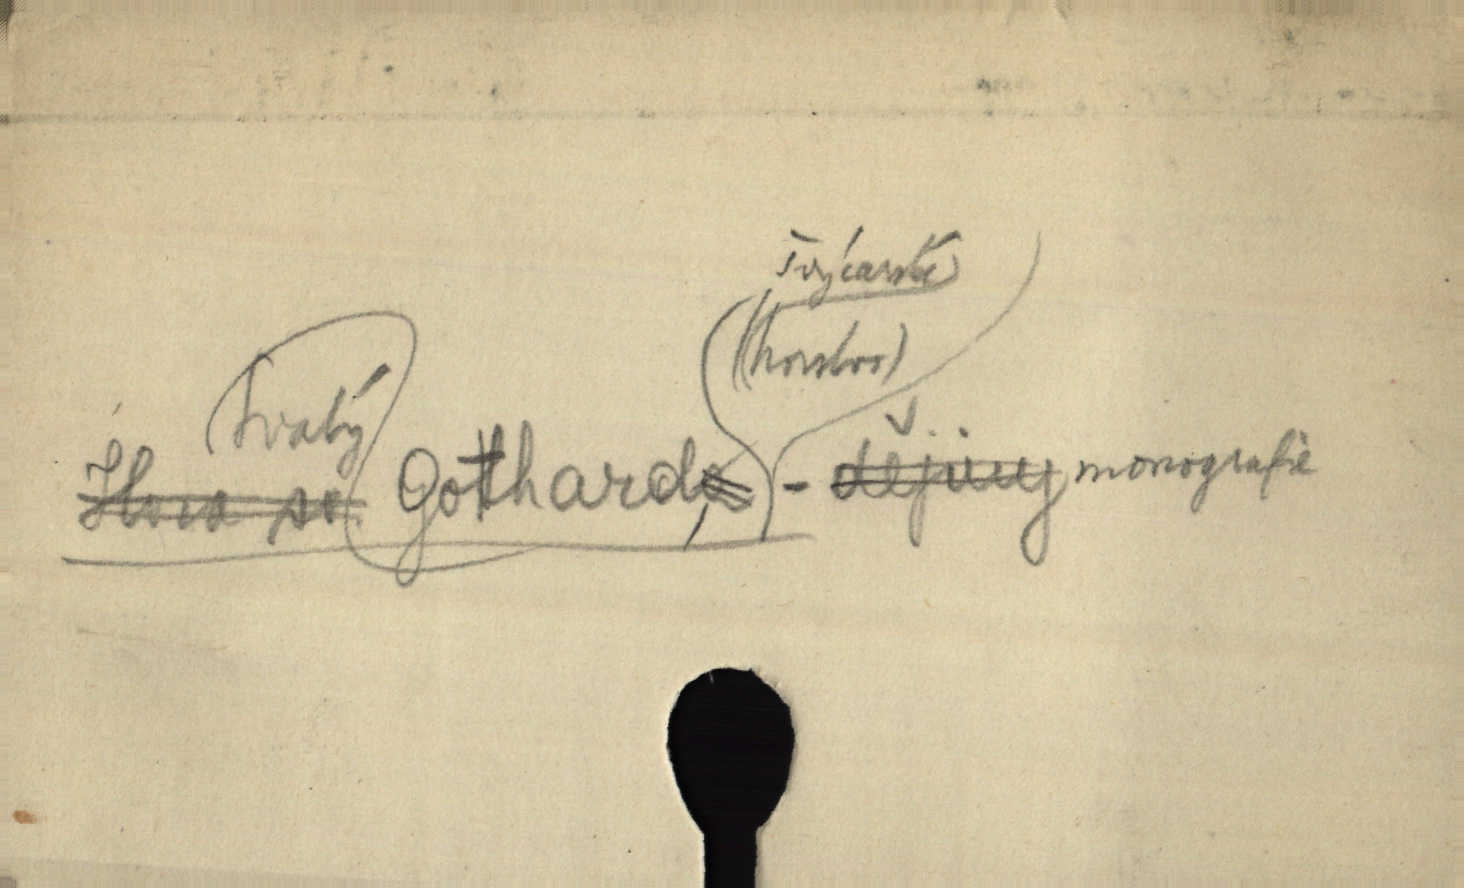 Švýcarsko
(horstvo)
Svatý
Hora sv. Gothard, - dějiny monografie